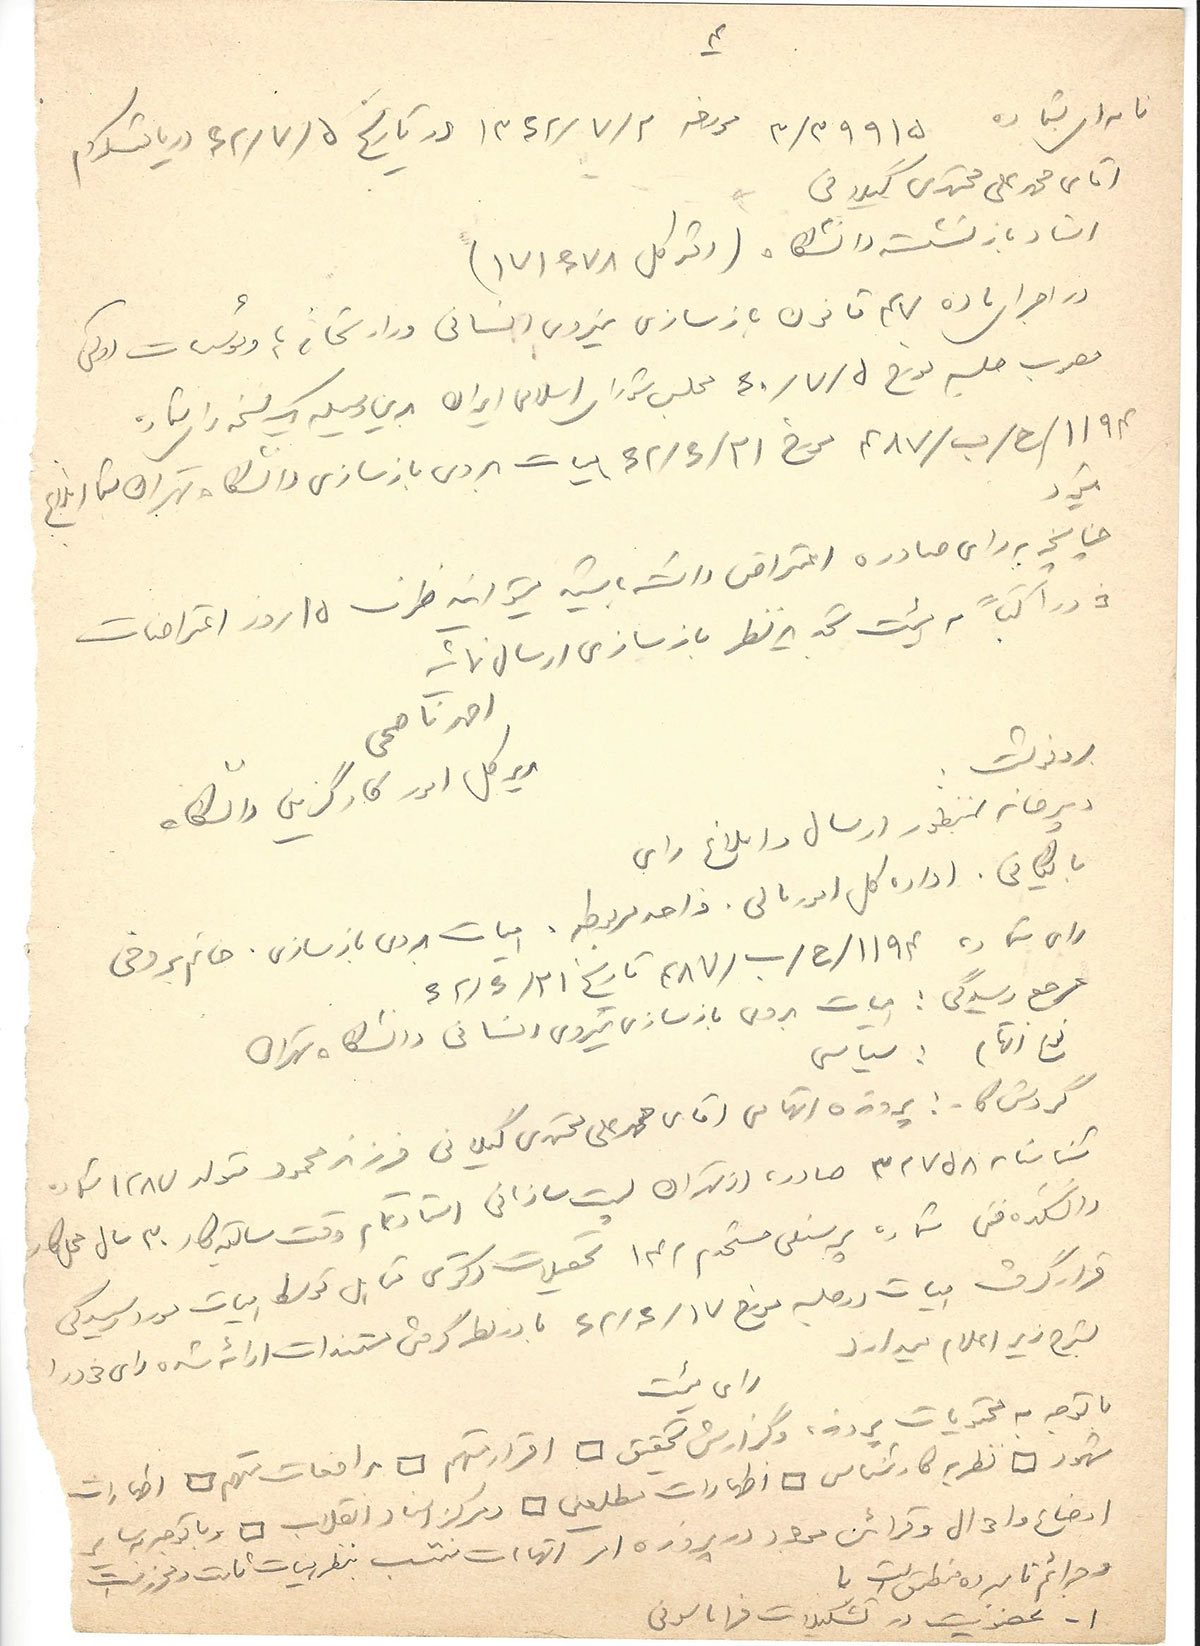 ۴
نامه‌ای بشماره ۳/۳۹۹۱۵ مورخه ۱۳۶۲/۷/۲ در تاریخ ۶۲/۷/۵ دریافت کردم
آقای محمدعلی مجتهدی گیلانی
استاد بازنشسته دانشگاه (دفتر کل ۱۷۱۶۷۸)
در اجرای ماده ۴۷ قانون بازسازی نیروی انسانی وزارتخانه‌ها و موسسات دولتی
مصوب جلسه مورخ ۶۰/۷/۵ مجلس شورای اسلامی ایران بدین وسیله یک نسخه رای شماره
۱۱۹۴/ح/ب/۴۸۷ مورخ ۶۲/۶/۳۱ هیات بدوی بازسازی دانشگاه تهران بشما ابلاغ
میگردد
چنانچه به رای صادره اعتراض داشته باشید میتوانید ظرف ۱۵ روز اعتراضات
خود را کتباً به هیئت تجدیدنظر بازسازی ارسال نمائید
احمد
مدیر کل امور کارگزینی دانشگاه
رونوشت :
دبیرخانه بمنظور ارسال و ابلاغ رای
بایگانی . اداره کل امور مالی . واحد مربوطه . هیات بدوی بازسازی . خانم
رای شماره ۱۱۹۴/ح/ب/۴۸۷ تاریخ ۶۲/۶/۳۱
مرجع رسیدگی : هیات بدوی بازسازی نیروی انسانی دانشگاه تهران
نوع اتهام : سیاسی
گردش کار : پرونده اتهامی آقای محمدعلی مجتهدی گیلانی فرزند محمود متولد ۱۲۸۷ شماره
شناسنامه ۳۲۷۵۸ صادره از تهران پست سازمانی استاد تمام وقت سابقه کار ۳۰ سال محل کار
دانشکده فنی شماره پرسنلی مستخدم ۱۴۲ تحصیلات دکتری توسط هیات مورد رسیدگی
قرار گرفت هیات در جلسه مورخ ۶۲/۶/۱۷ با در نظر گرفتن مستندات ارائه شده رای خود را
بشرح زیر اعلام میدارد
رای هیئت
با توجه به محتویات پرونده و گزارش تحقیق □ اقرار متهم □ مدافعات متهم □ اظهارات
شهود □ نظریه کارشناس □ اظهارات مطلعین □ مرکز اسناد انقلاب □ و با توجه به سایر
اوضاع و احوال و قرائن موجود در پرونده اتهامات منتسب بنظر هیات ثابت و محرز است
و جرائم نامبرده منطبق است با
۱- عضویت در تشکیلات فراماسونی